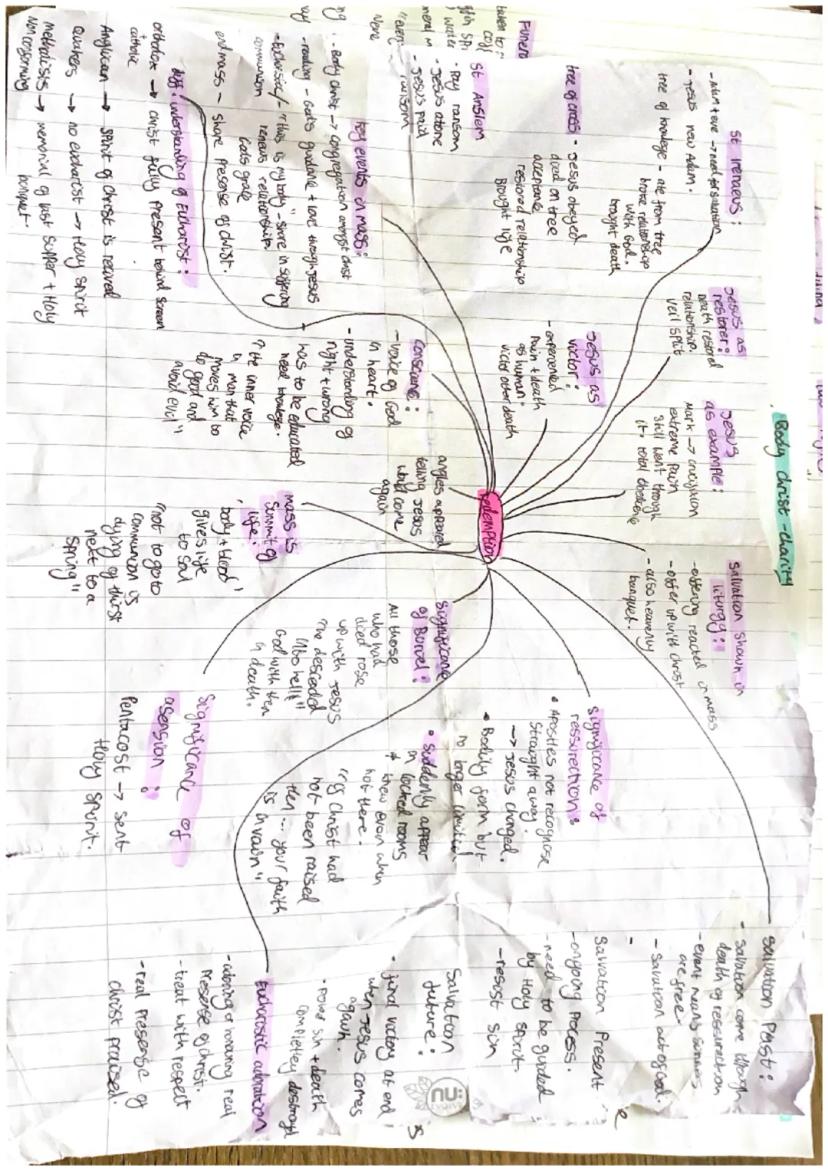 Body Christ - charity
St Irenaeus:
- Adam + eve → need for salvation
- Jesus new Adam.
tree of knowledge - ate from tree
broke relationship
with God.
brought death
tree of cross - Jesus obeyed
died on tree
acceptance
restored relationship
Brought life
St Anslem
• Pay ransom
- Jesus atone
- Jesus paid
ransom
Funera
Jesus as
restorer:
death restored
relationship
veil split
Jesus as
victor:
- experienced
pain + death
as human.
victor over death
Jesus
as example:
Mark → crucifixion
extreme pain
still went through
it → total obedience
Salvation shown in
liturgy:
- offering reacted in mass
- offer up with christ
- also heavenly
banquet.
redemption
key events in mass:
- Body Christ → congregation amongst christ
- reading - God's guidance + love through Jesus
- Eucharistic/ - "this is my body" - share in suffering
communion renews relationship.
God's grace
end mass - share presense of christ.
diff. understanding of Eucharist:
orthodox → christ fully present behind screen
catholic
Anglican → spirit of Christ is recived
Quakers → no eucharist → Holy spirit
methodists → memorial of last supper + Holy
Non conforming banquet.
conscience:
- voice of God
in heart.
- understanding of
right + wrong
need knowlege.
was to be educated
"the inner voice
in man that
moves him to
do good and
avoid evil"
angles appeared
telling Jesus
would come
again
mass is
summit of
life:
body + blood
gives life
to soul
"not to go to
communion is
dying of thirst
next to a
spring"
Significane
of Buriel:
All those
who had
died rose
up with Jesus
"he descended
into hell"
God with then
in death.
Significance of
asension:
Pentacost → sent
Holy spirit.
significance of
ressurection:
• Apostles not recognose
straught away.
→ Jesus changed.
• Bodily form but
no longer limited.
• suddenly appear
in locked rooms
+ knew even when
not there -
"if Christ had
not been raised
then ... your faith
is in vain"
Salvation Past:
- salvation come though
death & ressurection
- event means sinners
are free.
- Salvation act of God.
Salvation Present
- ongoing process.
- need to be guided
by Holy spirit.
- resost sin
Salvation
future:
• final victory at end
when Jesus comes
again.
• some sin + death
completley destroyed
Eucharistic adoration:
- adoring or honouring real
presense of christ.
- treat with respect
- real presense of
christ praised.